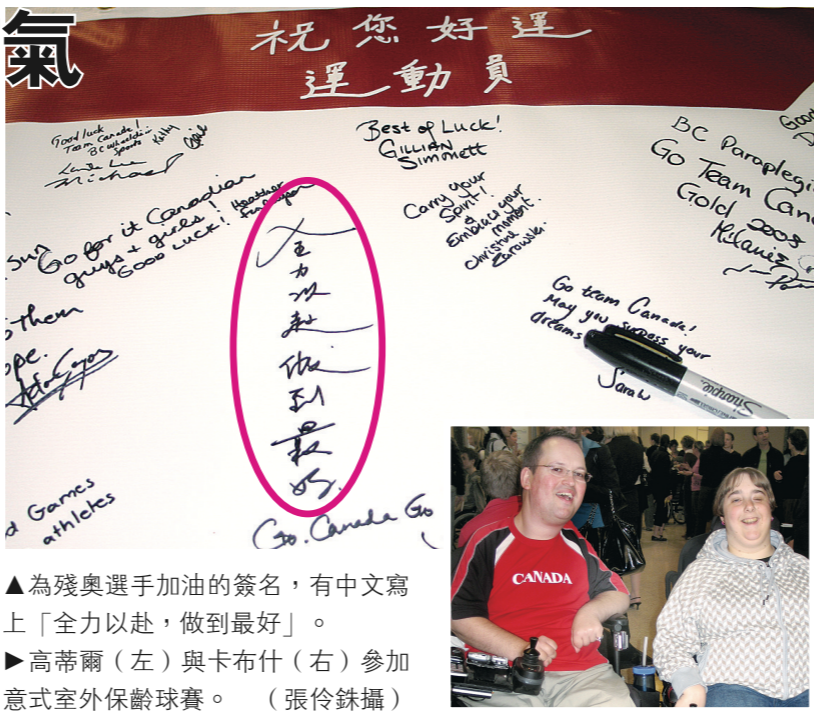 氣
祝您好運
運動員
Good luck
Team Canada!
BC Wheelchair
Sports
Kathy
Gail
Michael
Best of Luck!
GILLIAN
Simmett
BC Paraplegi
Go Team Can
Gold 2008
Milanie
Good
Sun
Go for it Canadian
guys + girls!
GOOD LUCK!
Heather
Carry your
Spirit!
&
Embrace your
moment.
Christina
Zarowski
全力以赴做到最好.
Them
ope.
Go team Canada!
May you surpass your
dreams
Sarah
Sharpie
d Games
athletes
Go Canada Go
CANADA
▲為殘奧選手加油的簽名,有中文寫
上「全力以赴,做到最好」。
▶高蒂爾(左)與卡布什(右)參加
意式室外保齡球賽。 (張伶銖攝)